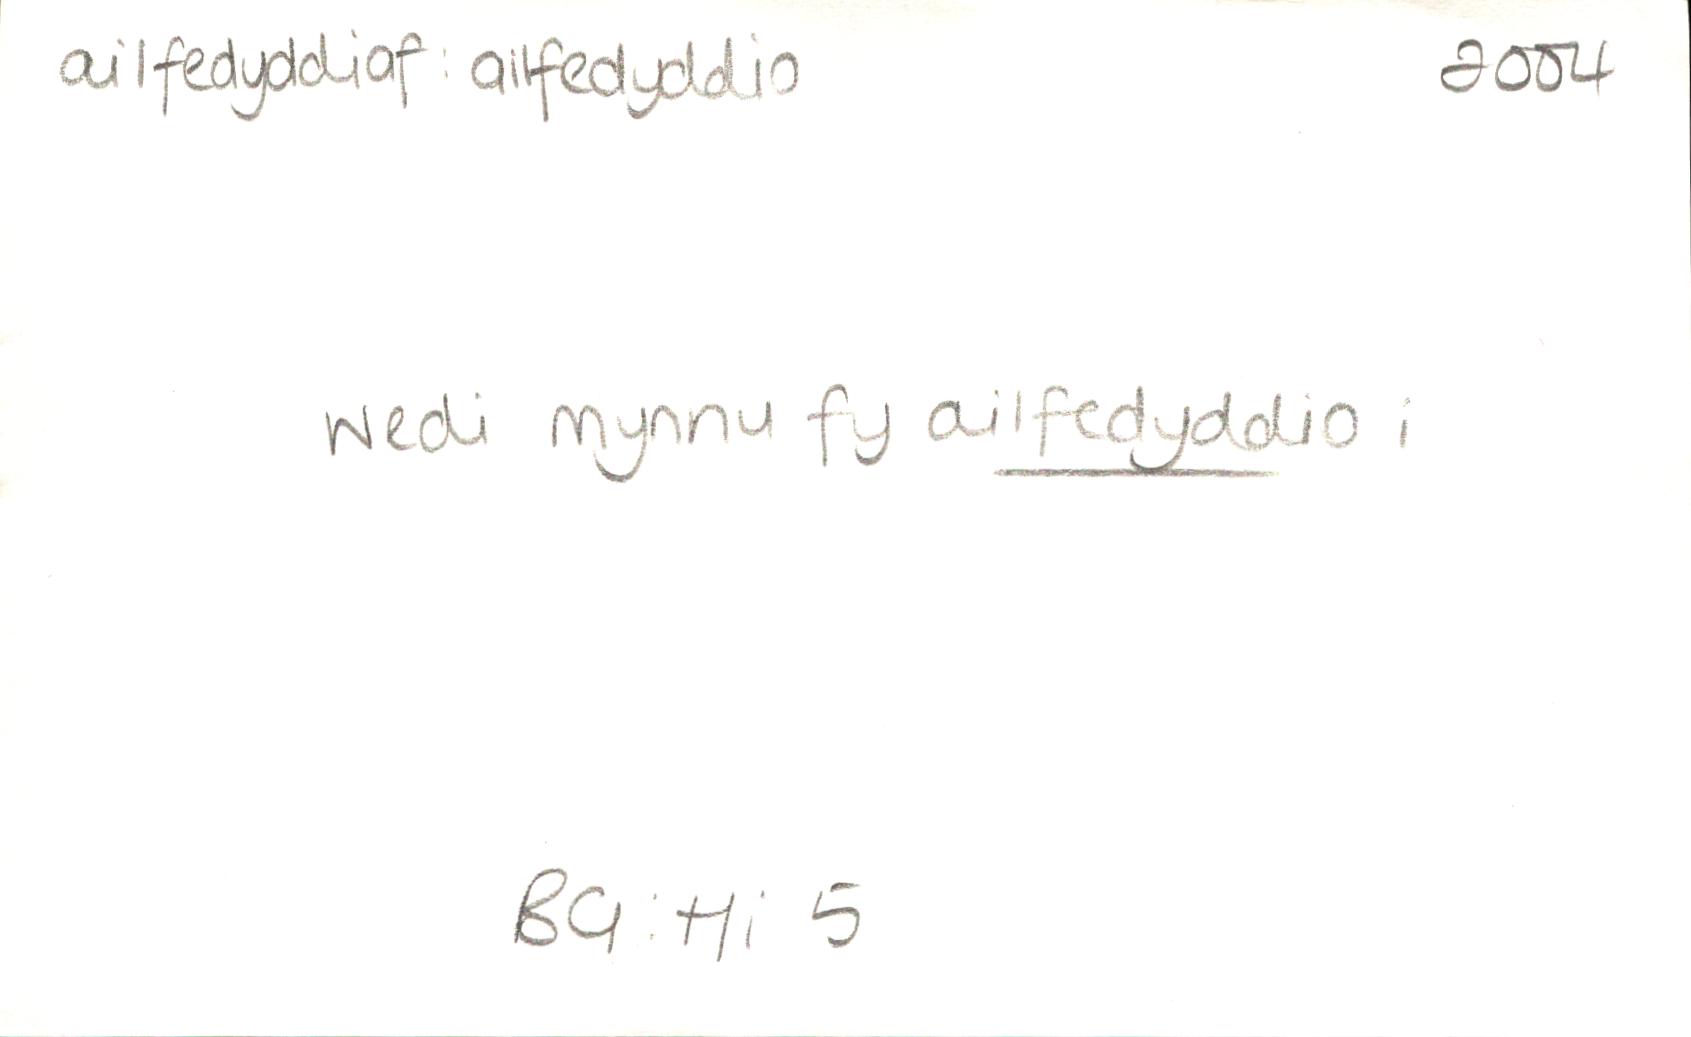 ailfedyddiaf: ailfedyddio 2004
wedi mynnu fy ailfedyddio i
BG: Hi 5